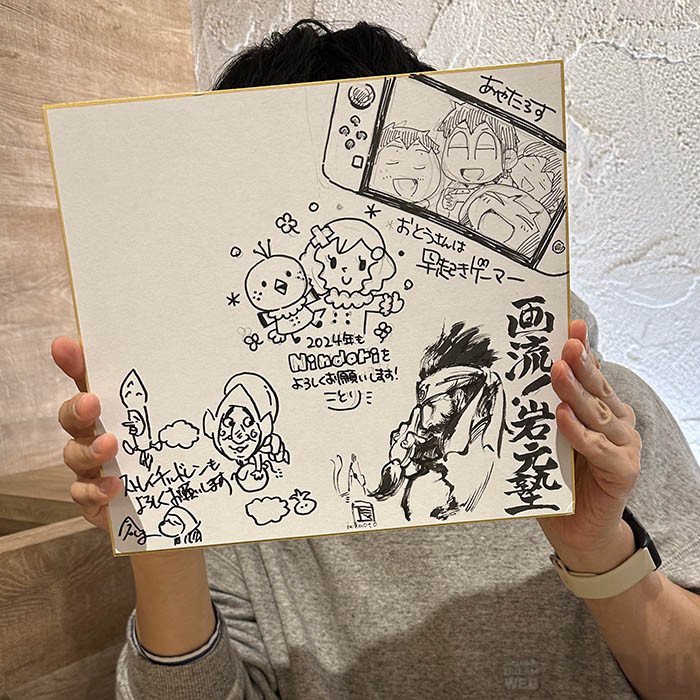 あやたろす
おとうさんは
早起きゲーマー
2024年も
Nindoriを
よろしくお願いします!
ことり
画流!岩元塾
ストレイチルドレンも
よろしくお願いします